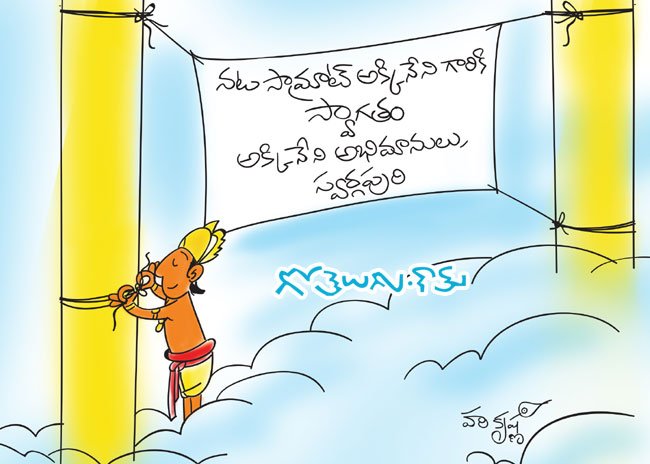 నట సామ్రాట్ అక్కినేని గారికి
స్వాగతం
అక్కినేని అభిమానులు,
స్వర్గపురి
గోతెలుగు.కామ్
హరికృష్ణ